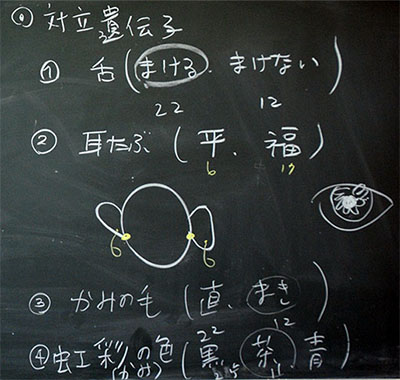 対立遺伝子
① 舌(まける、まけない)
22 12
② 耳たぶ(平、福)
6 17
6 6
③ かみの毛(直、まき)
12
22
④ 虹彩の色(黒、茶、青)
(かみ)